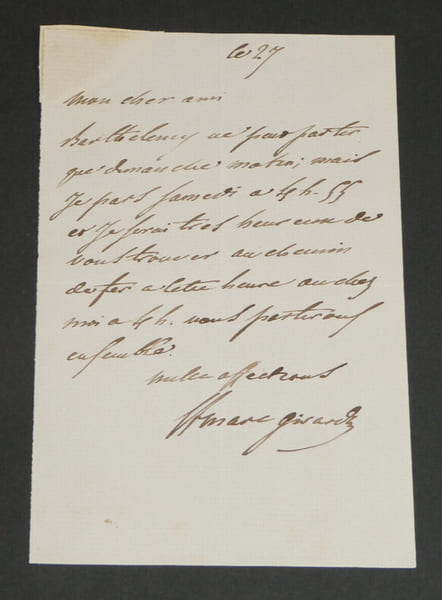 le 27
Mon cher ami
Barthelemy ne peut partir
que dimanche matin; mais
Je pars samedi a 4 h. 55
et Je serai tres heureux de
vous trouver au chemin
de fer a cette heure ou chez
moi a 4 h. nous partirons
ensemble.
mille affections
St marc girardin